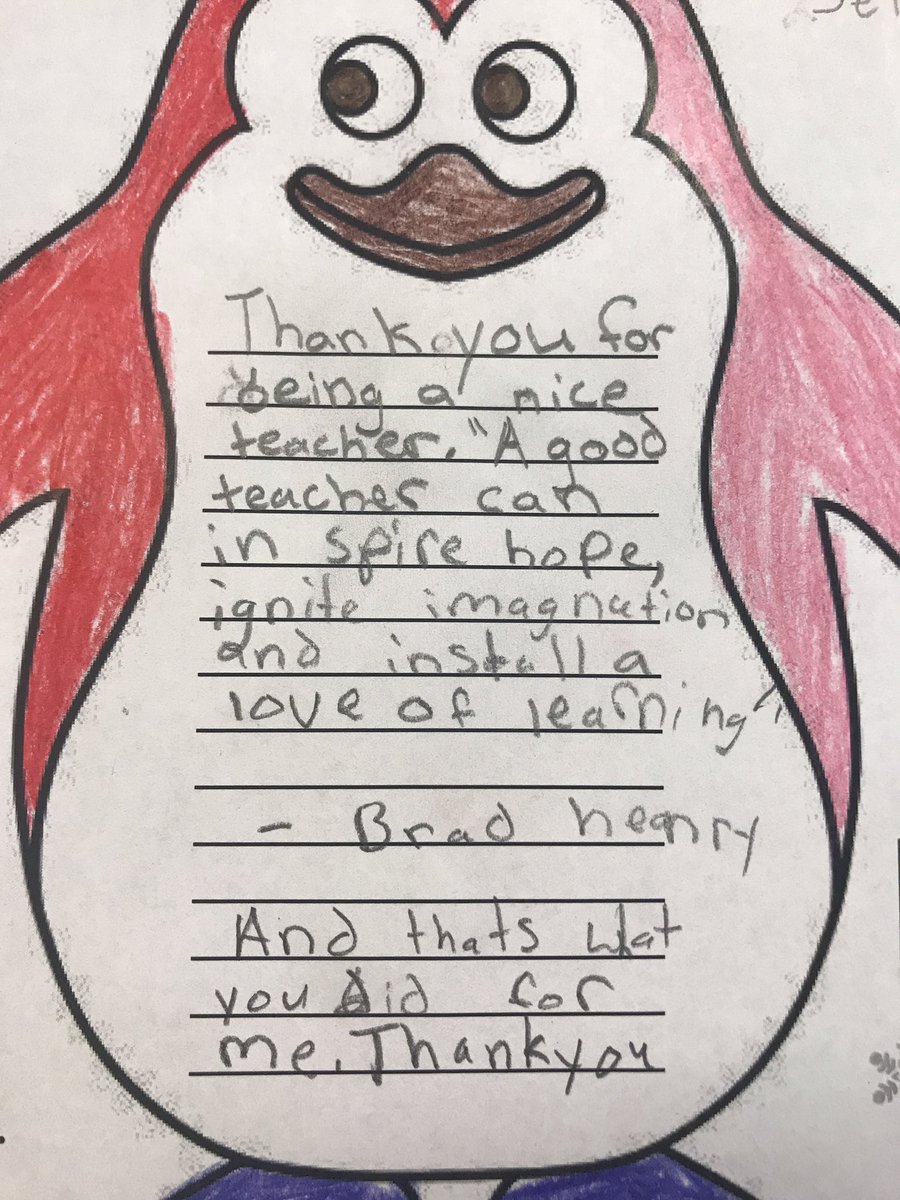 Thank you for
being a nice
teacher. "A good
teacher can
in spire hope,
ignite imagnation
and install a
love of learning"
- Brad heanry
And thats what
you did for
me. Thank you